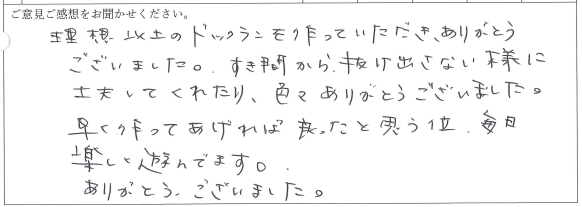 ご意見ご感想をお聞かせください。
理想以上のドックランを作っていただき、ありがとう
ございました。すき間から抜け出さない様に
工夫してくれたり、色々ありがとうございました。
早く作ってあげれば良かったと思う位、毎日
楽しく遊んでます。
ありがとう、ございました。